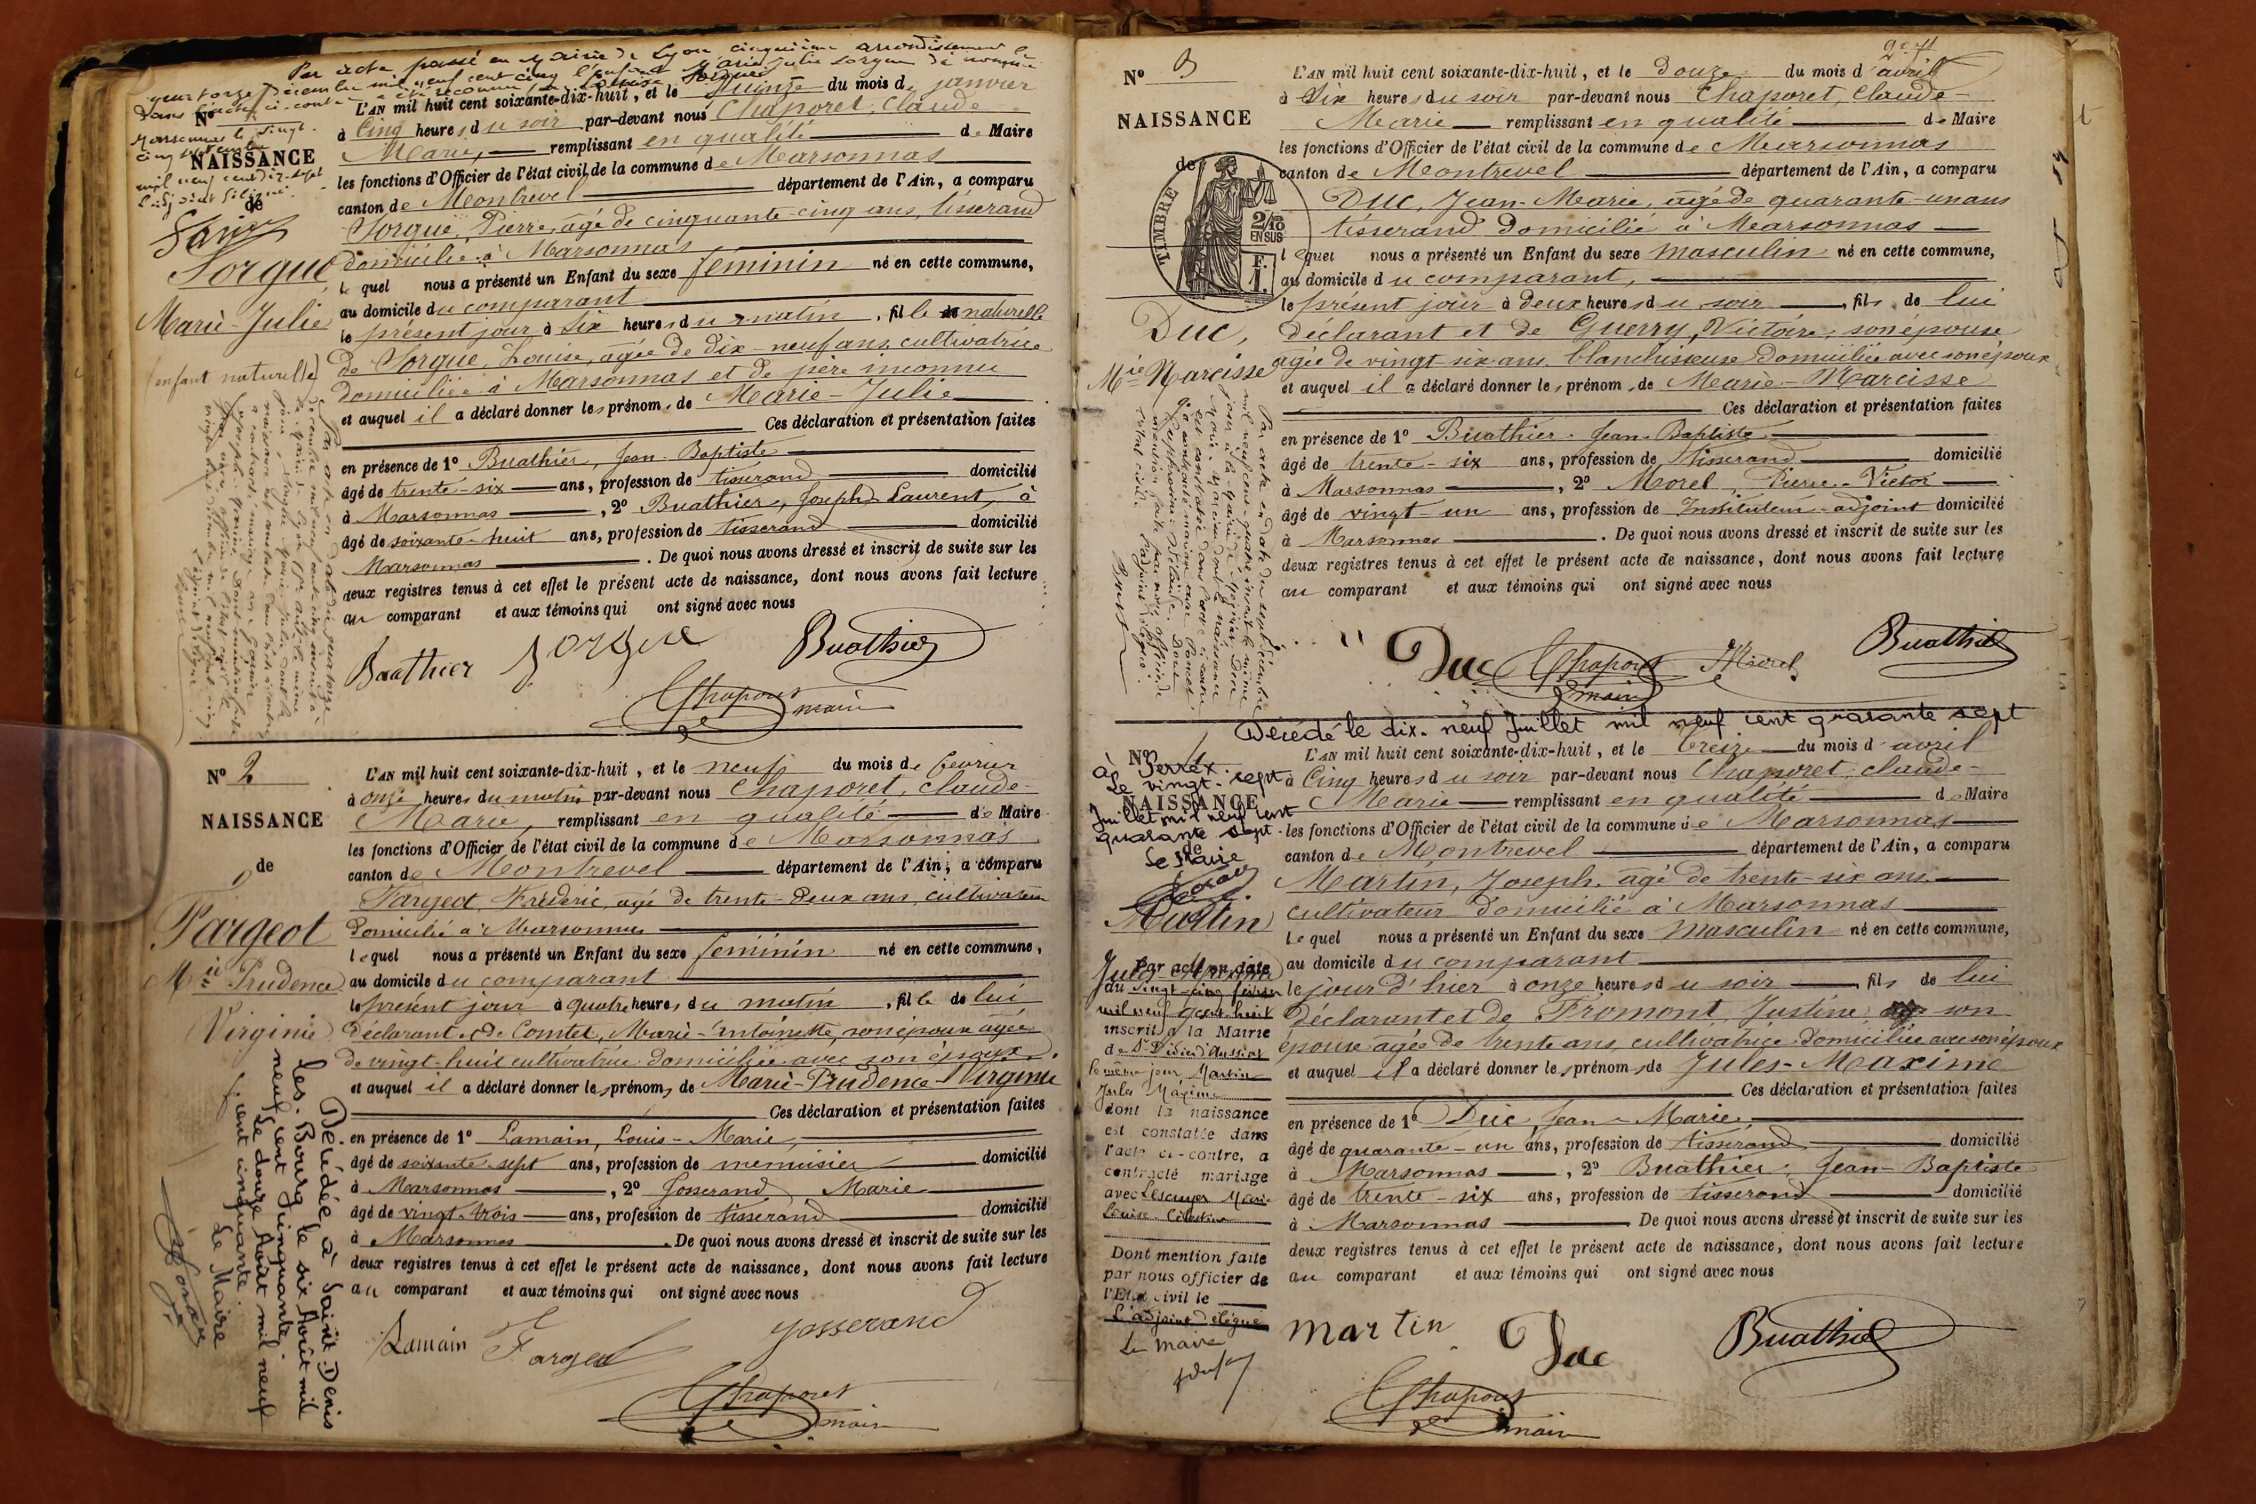 Par acte passé en Mairie de Lyon cinquième arrondissement le
quatorze Décembre mil neuf cent cinq l'enfant Marie Julie Sorgue dénommée
dans l'acte ci-contre a été reconnue par Louise Sorgue
Marsonnas le vingt-
cinq septembre
mil neuf cent dix-sept
L'adjoint délégué
Favier
N°
NAISSANCE
de
Sorgue
Marie-Julie
(enfant naturelle)
L'AN mil huit cent soixante-dix-huit, et le quinze du mois de janvier
à Cinq heures du soir par-devant nous Chaporet, Claude
Marie, remplissant en qualité de Maire
les fonctions d'Officier de l'état civil de la commune de Marsonnas
canton de Montrevel département de l'Ain, a comparu
Sorgue, Pierre, âgé de cinquante-cinq ans, tisserand
domicilié à Marsonnas
lequel nous a présenté un Enfant du sexe féminin né en cette commune,
au domicile du comparant
le présent jour à Six heures du matin, fille naturelle
de Sorgue, Louise, âgée de dix-neuf ans, cultivatrice
domiciliée à Marsonnas et de père inconnu
et auquel il a déclaré donner les prénoms de Marie-Julie
Ces déclaration et présentation faites
en présence de 1° Buathier, Jean-Baptiste
âgé de trente-six ans, profession de tisserand domicilié
à Marsonnas, 2° Buathier, Joseph-Laurent, à
âgé de soixante-huit ans, profession de tisserand domicilié
Marsonnas. De quoi nous avons dressé et inscrit de suite sur les
deux registres tenus à cet effet le présent acte de naissance, dont nous avons fait lecture
au comparant et aux témoins qui ont signé avec nous
Buathier Sorgue Buathier
Chaporet
maire
N° 2
NAISSANCE
de
Fargeot
Mie Prudence
Virginie
Décédée à Saint-Denis
les-Bourg le six Août mil
neuf cent cinquante
Le douze Août mil neuf
cent cinquante
Le Maire
L'AN mil huit cent soixante-dix-huit, et le neuf du mois de février
à onze heures du matin par-devant nous Chaporet, Claude-
Marie, remplissant en qualité de Maire
les fonctions d'Officier de l'état civil de la commune de Marsonnas
canton de Montrevel département de l'Ain, a comparu
Fargeot, Frédéric, âgé de trente-deux ans, cultivateur
domicilié à Marsonnas
lequel nous a présenté un Enfant du sexe féminin né en cette commune,
au domicile du comparant
le présent jour à quatre heures du matin, fille de lui
déclarant et de Comtet, Marie-Antoinette, son épouse âgée
de vingt-huit cultivatrice domiciliée avec son époux.
et auquel il a déclaré donner les prénoms de Marie-Prudence-Virginie
Ces déclaration et présentation faites
en présence de 1° Lamain, Louis-Marie,
âgé de soixante-sept ans, profession de menuisier domicilié
à Marsonnas, 2° Josserand, Marie
âgé de vingt-trois ans, profession de tisserand domicilié
à Marsonnas. De quoi nous avons dressé et inscrit de suite sur les
deux registres tenus à cet effet le présent acte de naissance, dont nous avons fait lecture
au comparant et aux témoins qui ont signé avec nous
Lamain Fargeot Josserand
Chaporet
maire
N° 3
NAISSANCE
de
TIMBRE
2/10
EN SUS
Duc,
Mie Narcisse
L'AN mil huit cent soixante-dix-huit, et le douze du mois d'avril
à Six heures du soir par-devant nous Chaporet, Claude-
Marie remplissant en qualité de Maire
les fonctions d'Officier de l'état civil de la commune de Marsonnas
canton de Montrevel département de l'Ain, a comparu
Duc, Jean-Marie, âgé de quarante-un ans
tisserand domicilié à Marsonnas
lequel nous a présenté un Enfant du sexe masculin né en cette commune,
au domicile du comparant,
le présent jour à deux heures du soir, fils de lui
déclarant et de Guerry, Victoire, son épouse
âgée de vingt-six ans, blanchisseuse domiciliée avec son époux
et auquel il a déclaré donner les prénoms de Marie-Narcisse
Ces déclaration et présentation faites
en présence de 1° Buathier, Jean-Baptiste
âgé de trente-six ans, profession de tisserand domicilié
à Marsonnas, 2° Morel, Pierre-Victor
âgé de vingt-un ans, profession de Instituteur-adjoint domicilié
à Marsonnas. De quoi nous avons dressé et inscrit de suite sur les
deux registres tenus à cet effet le présent acte de naissance, dont nous avons fait lecture
au comparant et aux témoins qui ont signé avec nous
Duc Chaporet Morel Buathier
maire
Décédé le dix-neuf Juillet mil neuf cent quarante sept
à Perrex.
Le vingt-sept
Juillet mil neuf cent
quarante sept.
Le Maire
N° 4
NAISSANCE
de
Martin
Jules-Maxime
Par acte en date
du vingt-cinq février
mil neuf cent huit
inscrit à la Mairie
de St Didier d'Aussiat
le même jour Martin
Jules Maxime
dont la naissance
est constatée dans
l'acte ci-contre, a
contracté mariage
avec Lescuyer Marie
Louise Célestine
Dont mention faite
par nous officier de
l'Etat civil le
L'adjoint délégué
Le maire
L'AN mil huit cent soixante-dix-huit, et le treize du mois d'avril
à Cinq heures du soir par-devant nous Chaporet, Claude-
Marie remplissant en qualité de Maire
les fonctions d'Officier de l'état civil de la commune de Marsonnas
canton de Montrevel département de l'Ain, a comparu
Martin, Joseph, âgé de trente-six ans
cultivateur domicilié à Marsonnas
lequel nous a présenté un Enfant du sexe masculin né en cette commune,
au domicile du comparant
le jour d'hier à onze heures du soir, fils de lui
déclarant et de Fromont, Justine, son
épouse âgée de trente ans, cultivatrice domiciliée avec son époux
et auquel il a déclaré donner les prénoms de Jules-Maxime
Ces déclaration et présentation faites
en présence de 1° Duc, Jean-Marie,
âgé de quarante-un ans, profession de tisserand domicilié
à Marsonnas, 2° Buathier, Jean-Baptiste
âgé de trente-six ans, profession de tisserand domicilié
à Marsonnas De quoi nous avons dressé et inscrit de suite sur les
deux registres tenus à cet effet le présent acte de naissance, dont nous avons fait lecture
au comparant et aux témoins qui ont signé avec nous
Martin Duc Buathier
Chaporet
maire